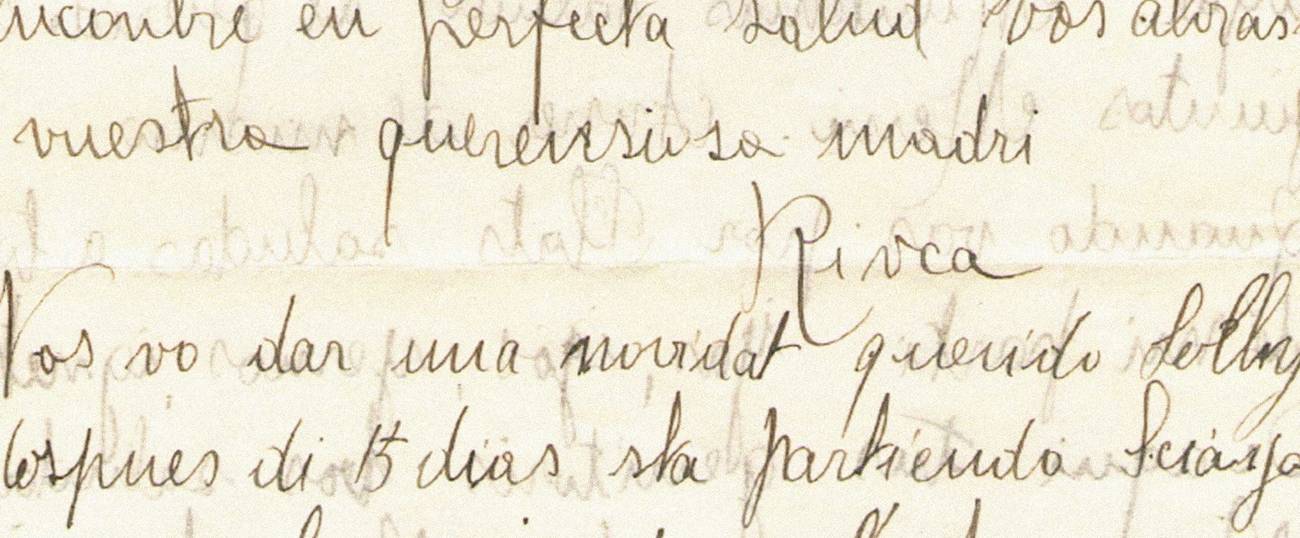 encontre en perfecta salud vos abras
vuestra querensiosa madri
Rivca
Vos vo dar una novidat querido Solly
despues di 15 dias sta partiendo